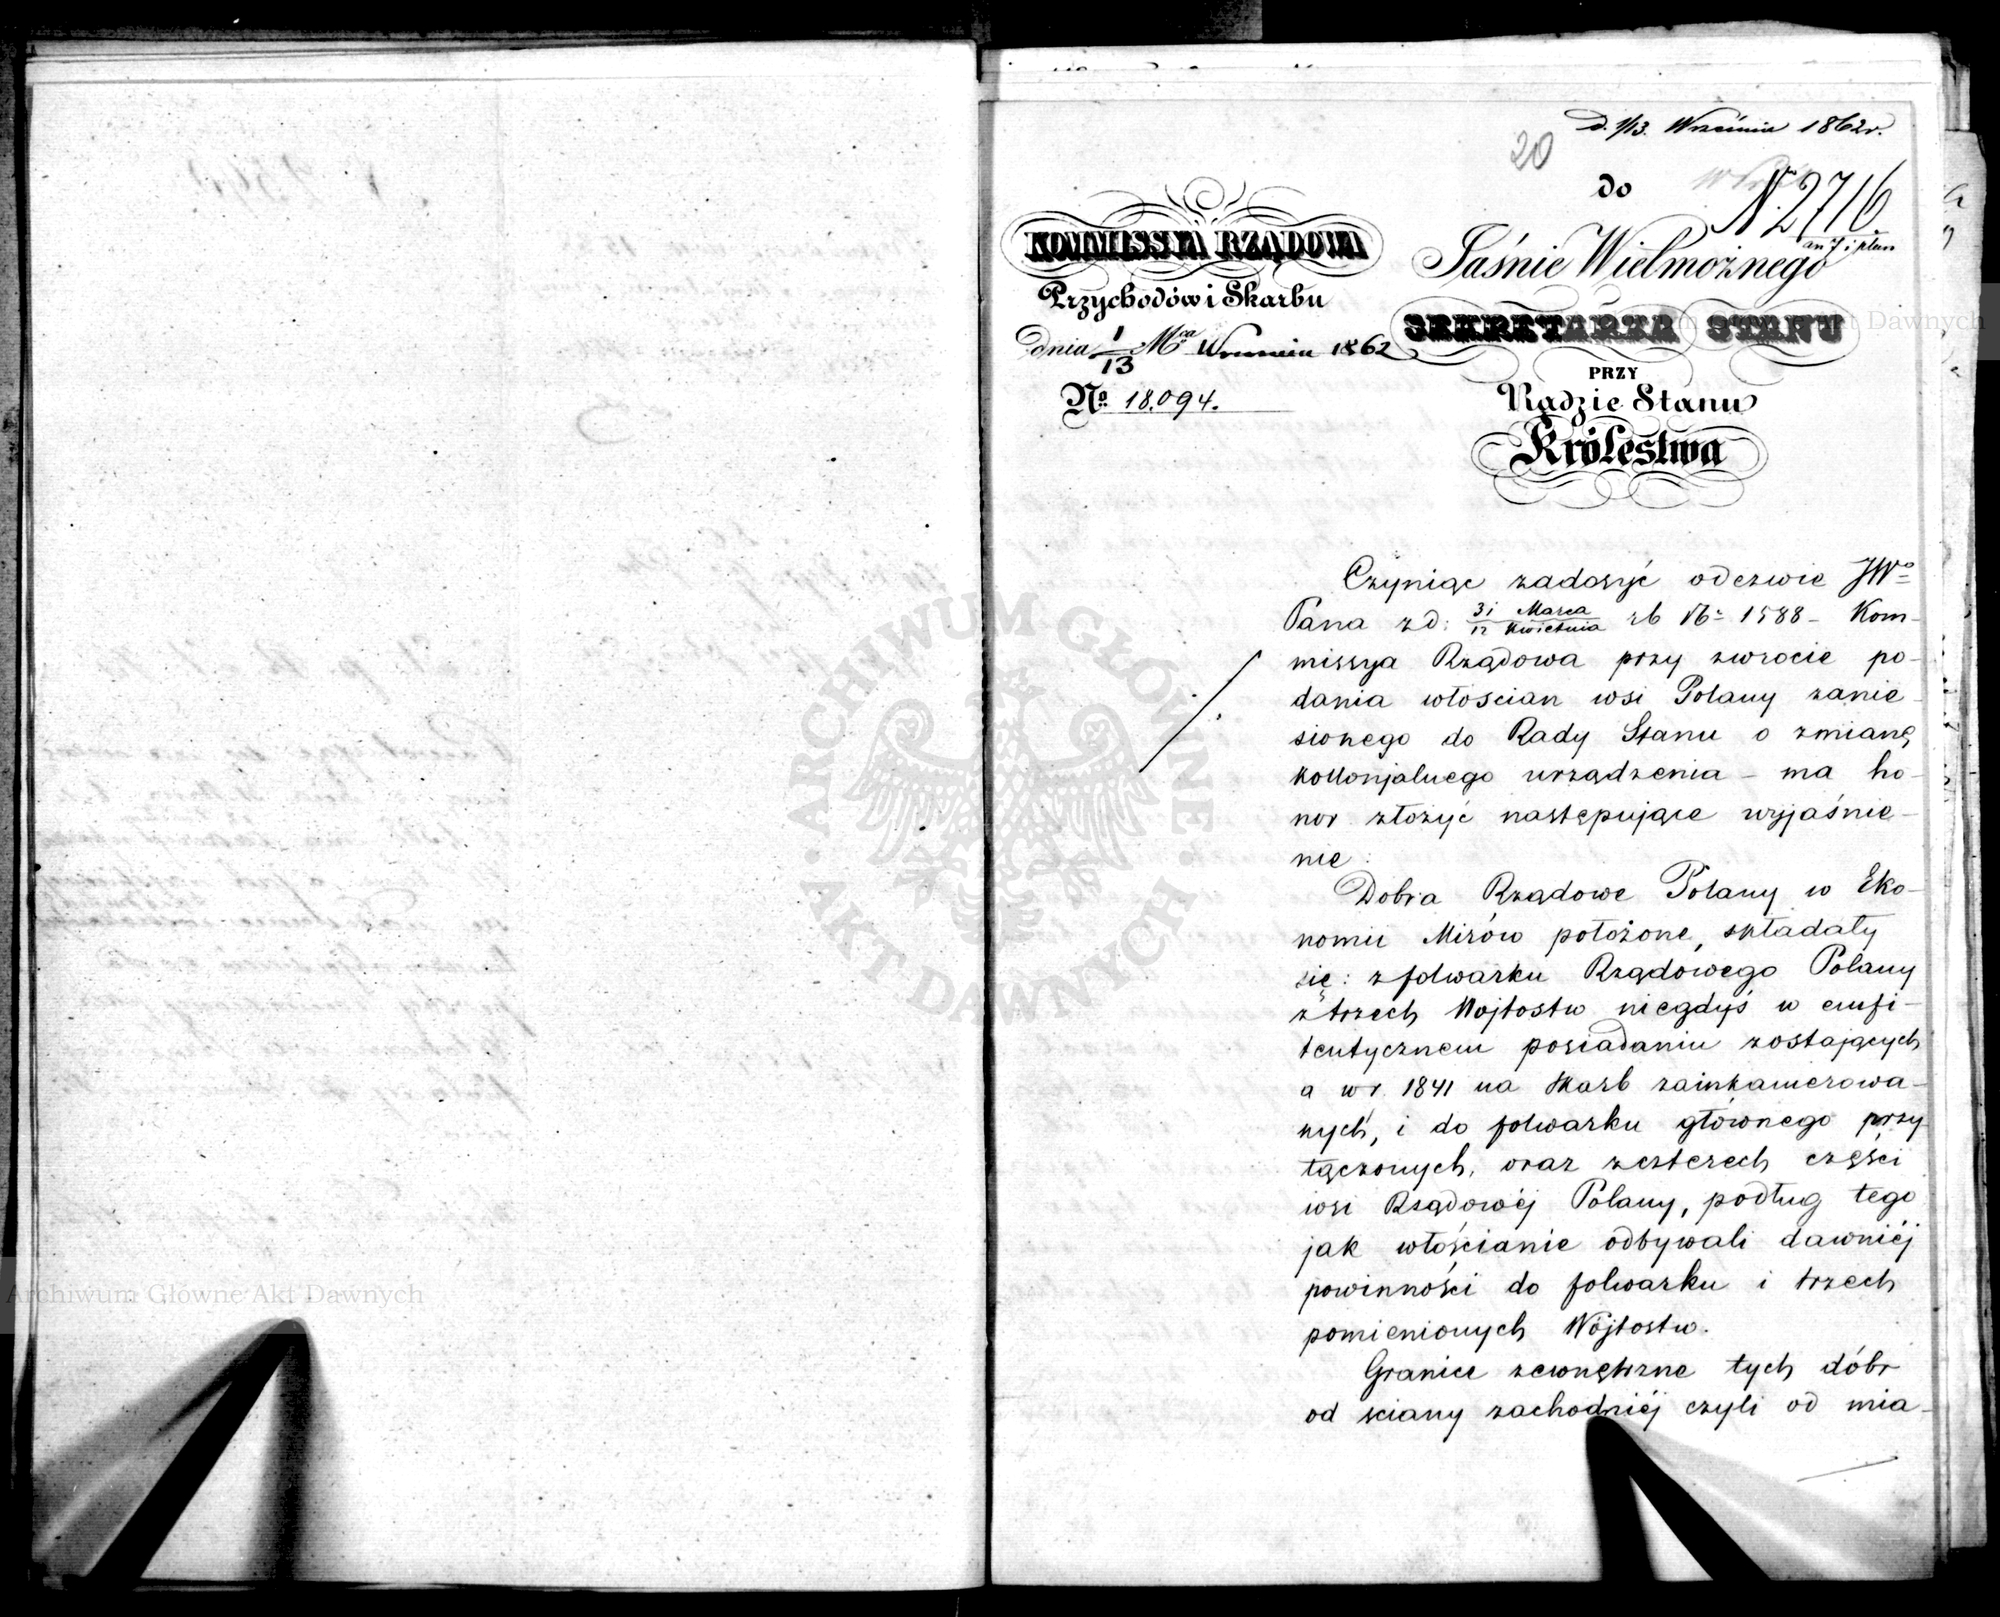 d. 1/13. Września 1862 r.
20
do
N. 2716
an 7 i plan
KOMMISSYA RZĄDOWA
Przychodów i Skarbu
dnia 1/13 Mca Września 1862
No. 18.094.
Jaśnie Wielmożnego
SEKRETARZA STANU
PRZY
Radzie Stanu
Królestwa
Czyniąc zadosyć odezwie JWo
Pana z d: 31 Marca / 12 Kwietnia rb No 1588 - Kom-
missya Rządowa przy zwrocie po-
dania włościan wsi Polany zanie-
sionego do Rady Stanu o zmianę
kollonjalnego urządzenia - ma ho-
nor złożyć następujące wyjaśnie-
nie:
Dobra Rządowe Polany w Eko-
nomii Mirów położone, składały
się: z folwarku Rządówego Polany
z trzech Wojtostw niegdyś w emfi-
teutycznem posiadaniu zostających
a w r. 1841 na Skarb zainkamerowa-
nych, i do folwarku głównego przy
łączonych, oraz zczterech części
wsi Rządowéj Polany, podług tego
jak włościanie odbywali dawniéj
powinności do folwarku i trzech
pomienionych Wójtostw.
Granice zewnętrzne tych dóbr
od ściany zachodniéj czyli od mia-
ARCHIWUM GŁÓWNE AKT DAWNYCH
Archiwum Główne Akt Dawnych